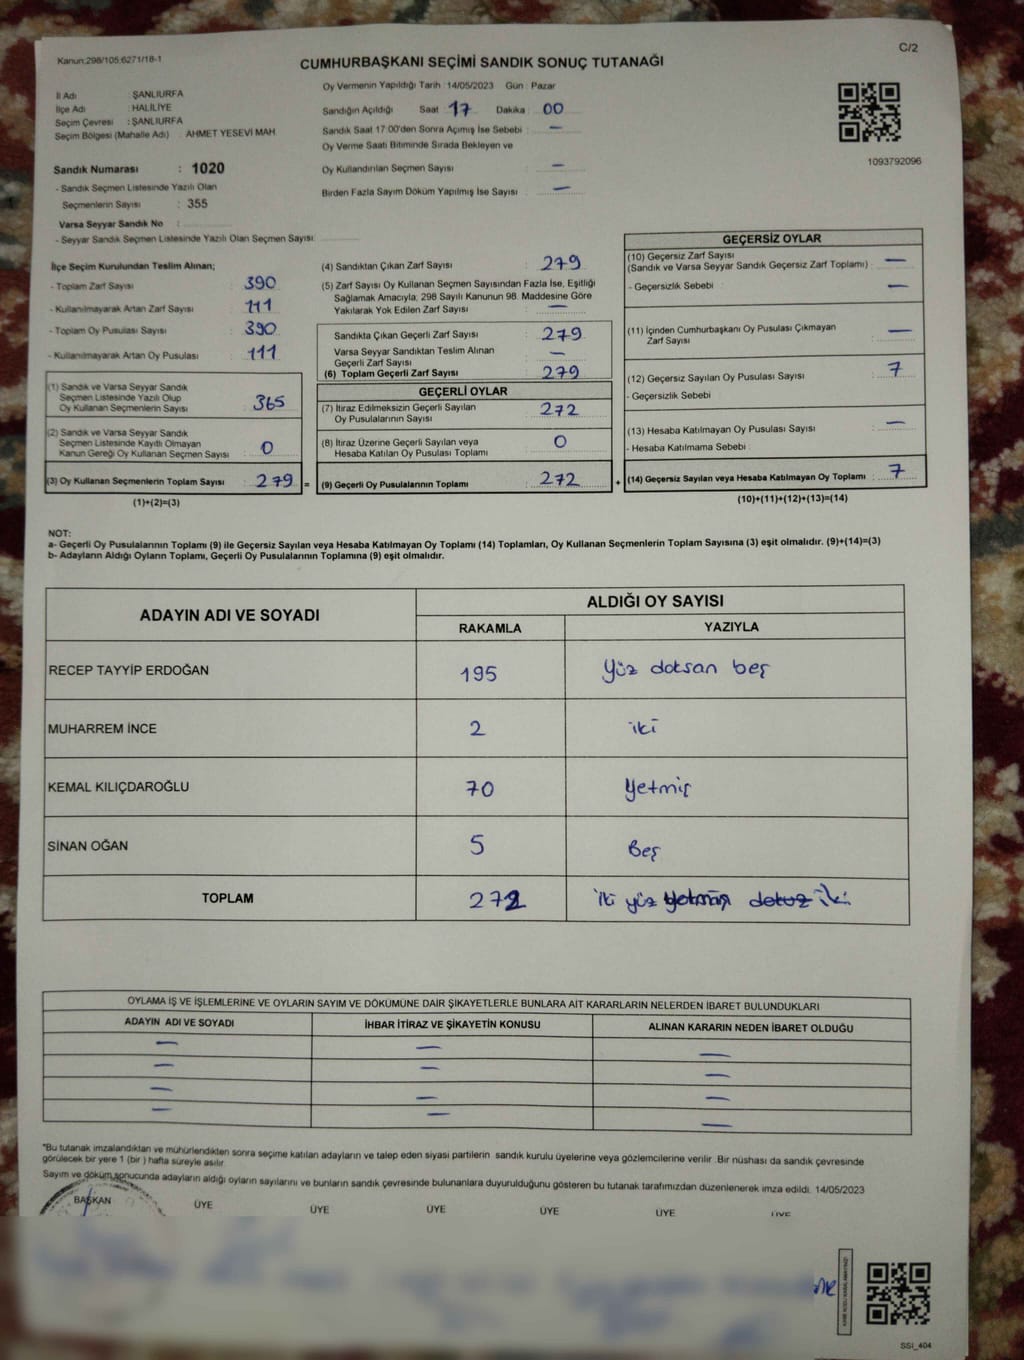 Kanun:298/105;6271/18-1
C/2
CUMHURBAŞKANI SEÇİMİ SANDIK SONUÇ TUTANAĞI
İl Adı : ŞANLIURFA
İlçe Adı : HALİLİYE
Seçim Çevresi : ŞANLIURFA
Seçim Bölgesi (Mahalle Adı) : AHMET YESEVİ MAH.
Oy Vermenin Yapıldığı Tarih : 14/05/2023 Gün : Pazar
Sandığın Açıldığı Saat : 17 Dakika : 00
Sandık Saat 17:00'den Sonra Açılmış İse Sebebi : —
Oy Verme Saati Bitiminde Sırada Bekleyen ve
Oy Kullandırılan Seçmen Sayısı : —
Birden Fazla Sayım Döküm Yapılmış İse Sayısı : —
1093792096
Sandık Numarası : 1020
- Sandık Seçmen Listesinde Yazılı Olan
Seçmenlerin Sayısı : 355
Varsa Seyyar Sandık No :
- Seyyar Sandık Seçmen Listesinde Yazılı Olan Seçmen Sayısı:
İlçe Seçim Kurulundan Teslim Alınan;
- Toplam Zarf Sayısı : 390
- Kullanılmayarak Artan Zarf Sayısı : 111
- Toplam Oy Pusulası Sayısı : 390
- Kullanılmayarak Artan Oy Pusulası : 111
(1) Sandık ve Varsa Seyyar Sandık
Seçmen Listesinde Yazılı Olup
Oy Kullanan Seçmenlerin Sayısı : 365
(2) Sandık ve Varsa Seyyar Sandık
Seçmen Listesinde Kayıtlı Olmayan
Kanun Gereği Oy Kullanan Seçmen Sayısı : 0
(3) Oy Kullanan Seçmenlerin Toplam Sayısı : 279 =
(1)+(2)=(3)
(4) Sandıktan Çıkan Zarf Sayısı : 279
(5) Zarf Sayısı Oy Kullanan Seçmen Sayısından Fazla İse, Eşitliği
Sağlamak Amacıyla; 298 Sayılı Kanunun 98. Maddesine Göre
Yakılarak Yok Edilen Zarf Sayısı : —
Sandıkta Çıkan Geçerli Zarf Sayısı : 279
Varsa Seyyar Sandıktan Teslim Alınan
Geçerli Zarf Sayısı : —
(6) Toplam Geçerli Zarf Sayısı : 279
GEÇERLİ OYLAR
(7) İtiraz Edilmeksizin Geçerli Sayılan
Oy Pusulalarının Sayısı : 272
(8) İtiraz Üzerine Geçerli Sayılan veya
Hesaba Katılan Oy Pusulası Toplamı : 0
(9) Geçerli Oy Pusulalarının Toplamı : 272 +
GEÇERSİZ OYLAR
(10) Geçersiz Zarf Sayısı
(Sandık ve Varsa Seyyar Sandık Geçersiz Zarf Toplamı) : —
- Geçersizlik Sebebi : —
(11) İçinden Cumhurbaşkanı Oy Pusulası Çıkmayan
Zarf Sayısı : —
(12) Geçersiz Sayılan Oy Pusulası Sayısı : 7
- Geçersizlik Sebebi
(13) Hesaba Katılmayan Oy Pusulası Sayısı : —
- Hesaba Katılmama Sebebi :
(14) Geçersiz Sayılan veya Hesaba Katılmayan Oy Toplamı : 7
(10)+(11)+(12)+(13)=(14)
NOT:
a- Geçerli Oy Pusulalarının Toplamı (9) ile Geçersiz Sayılan veya Hesaba Katılmayan Oy Toplamı (14) Toplamları, Oy Kullanan Seçmenlerin Toplam Sayısına (3) eşit olmalıdır. (9)+(14)=(3)
b- Adayların Aldığı Oyların Toplamı, Geçerli Oy Pusulalarının Toplamına (9) eşit olmalıdır.
ADAYIN ADI VE SOYADI
ALDIĞI OY SAYISI
RAKAMLA YAZIYLA
RECEP TAYYİP ERDOĞAN 195 Yüz doksan beş
MUHARREM İNCE 2 iki
KEMAL KILIÇDAROĞLU 70 Yetmiş
SİNAN OĞAN 5 Beş
TOPLAM 272 iki yüz yetmiş dokuz iki
OYLAMA İŞ VE İŞLEMLERİNE VE OYLARIN SAYIM VE DÖKÜMÜNE DAİR ŞİKAYETLERLE BUNLARA AİT KARARLARIN NELERDEN İBARET BULUNDUKLARI
ADAYIN ADI VE SOYADI İHBAR İTİRAZ VE ŞİKAYETİN KONUSU ALINAN KARARIN NEDEN İBARET OLDUĞU
— — —
— — —
— — —
— — —
*Bu tutanak imzalandıktan ve mühürlendikten sonra seçime katılan adayların ve talep eden siyasi partilerin sandık kurulu üyelerine veya gözlemcilerine verilir. Bir nüshası da sandık çevresinde
görülecek bir yere 1 (bir ) hafta süreyle asılır.
Sayım ve döküm sonucunda adayların aldığı oyların sayılarını ve bunların sandık çevresinde bulunanlara duyurulduğunu gösteren bu tutanak tarafımızdan düzenlenerek imza edildi. 14/05/2023
BAŞKAN ÜYE ÜYE ÜYE ÜYE ÜYE ÜYE
SSI_404